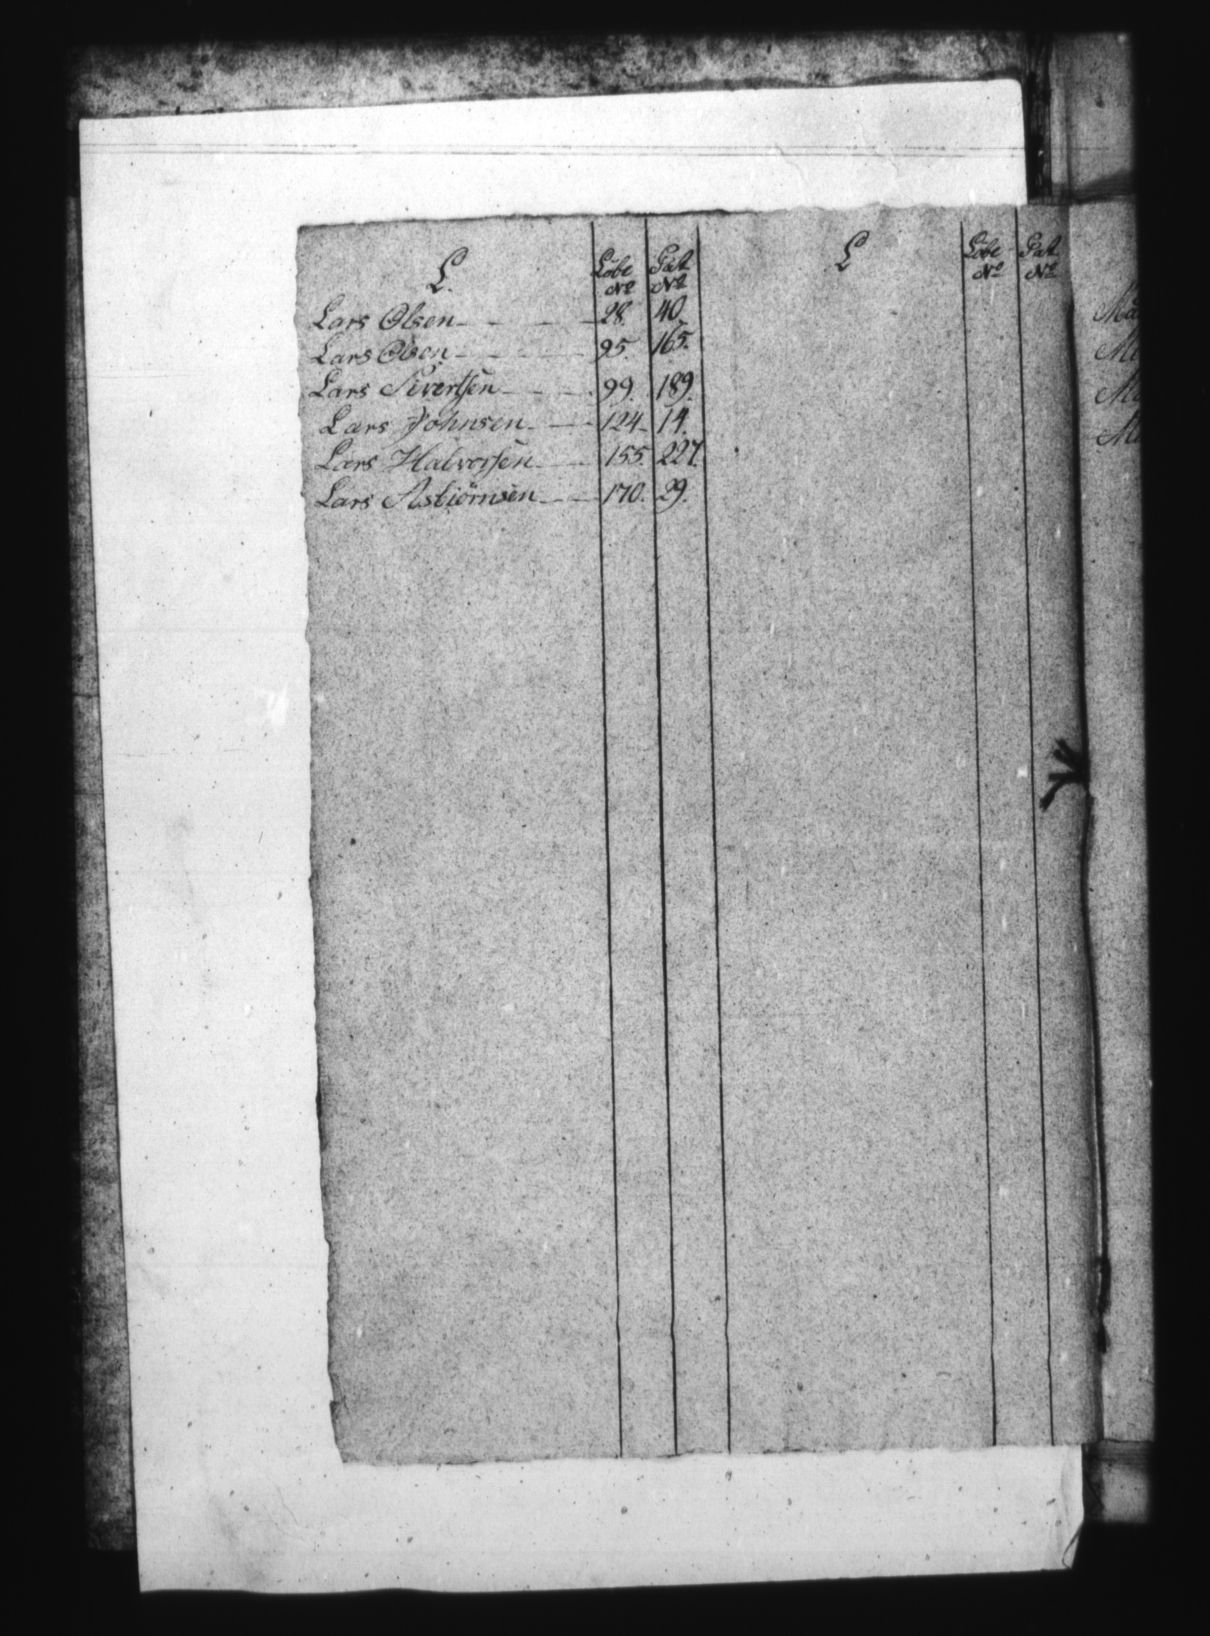 L. Löbe Nº Gaſt Nº
Lars Olsen 28. 40.
Lars Olsen 95 165.
Lars Sivertſen 99. 189.
Lars Johnsen 124. 14.
Lars Halvorſen 155. 227.
Lars Asbiörnsen 170. 29.
L Löbe Nº Gaſt Nº